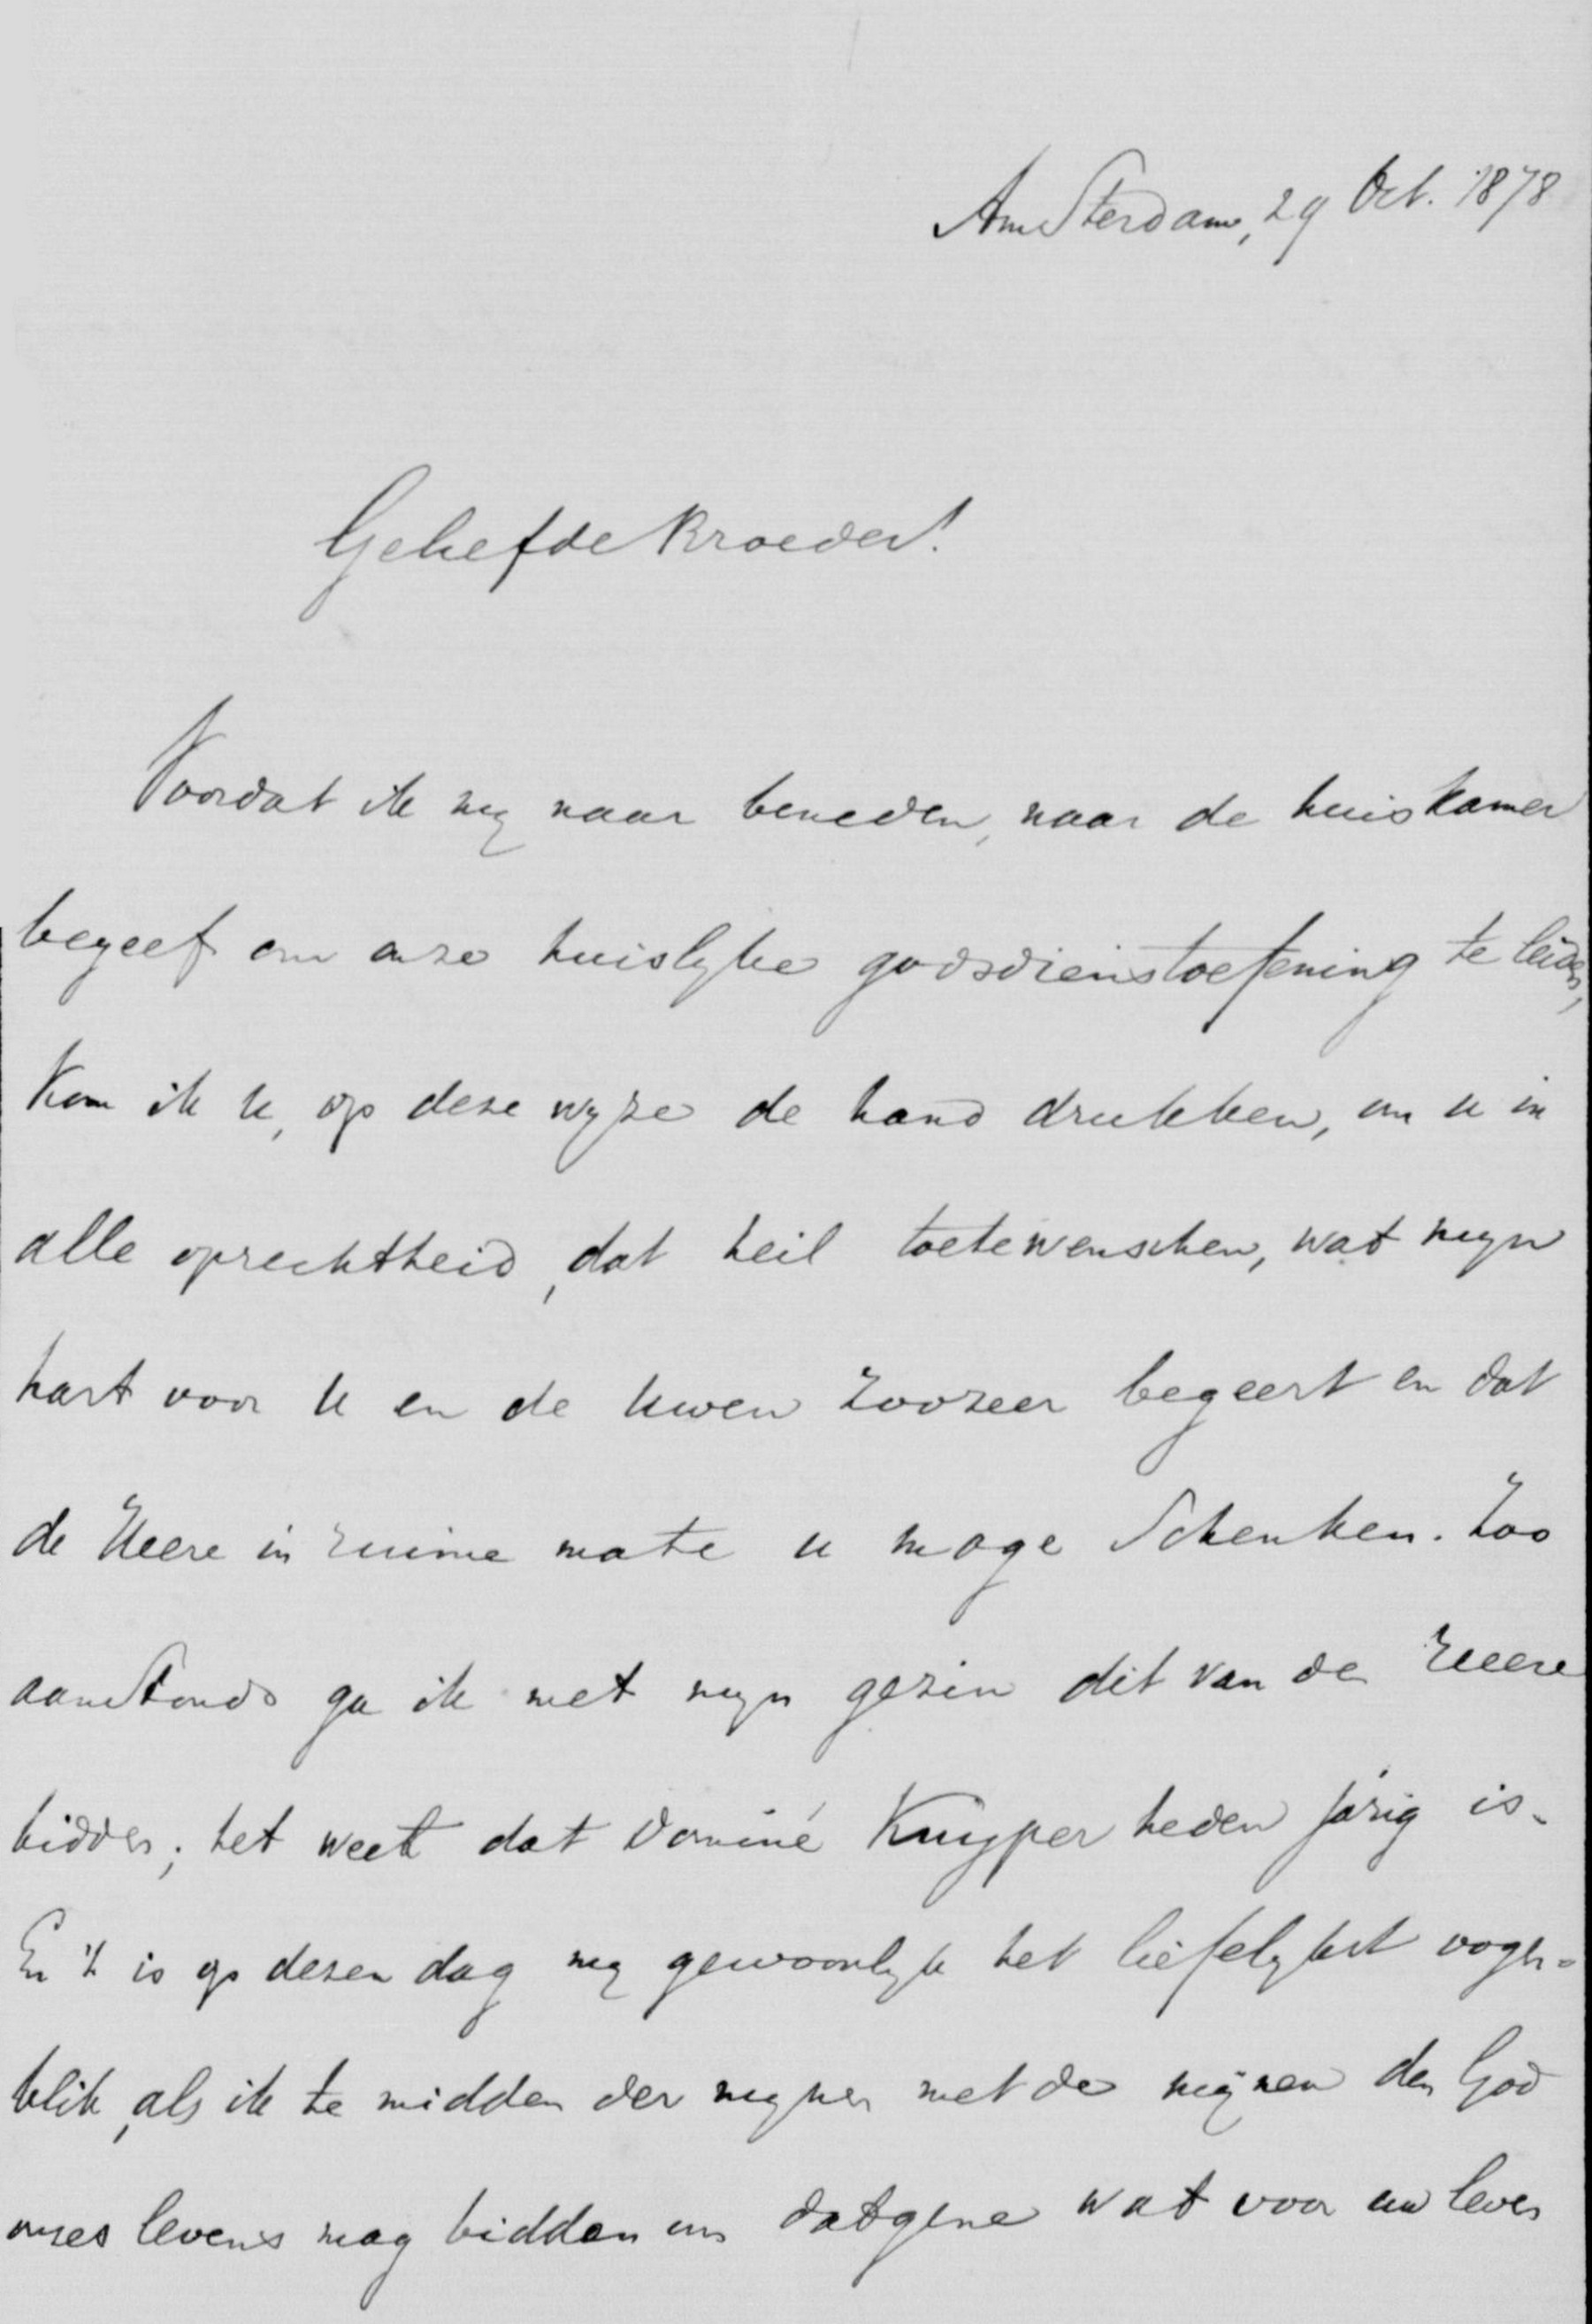 Amsterdam, 29 Oct. 1878
Geliefde Broeder!
Voordat ik my naar beneden, naar de huiskamer
begeef om onze huislyke godsdienstoefening te leiden,
kom ik u, op deze wyze de hand drukken, om u in
alle oprechtheid, dat heil toetewenschen, wat myn
hart voor u en de uwen zoozeer begeert en dat
de Heere in ruime mate u moge schenken. Zoo
aanstonds ga ik met myn gezin dit van de Heere
bidden; het weet dat Dominé Kuyper heden jarig is.
En 't is op dezen dag my gewoonlyk het liefelykst oogen-
blik, als ik te midden der mynen met de mijnen den God
onzes levens mag bidden om datgene wat voor uw leven